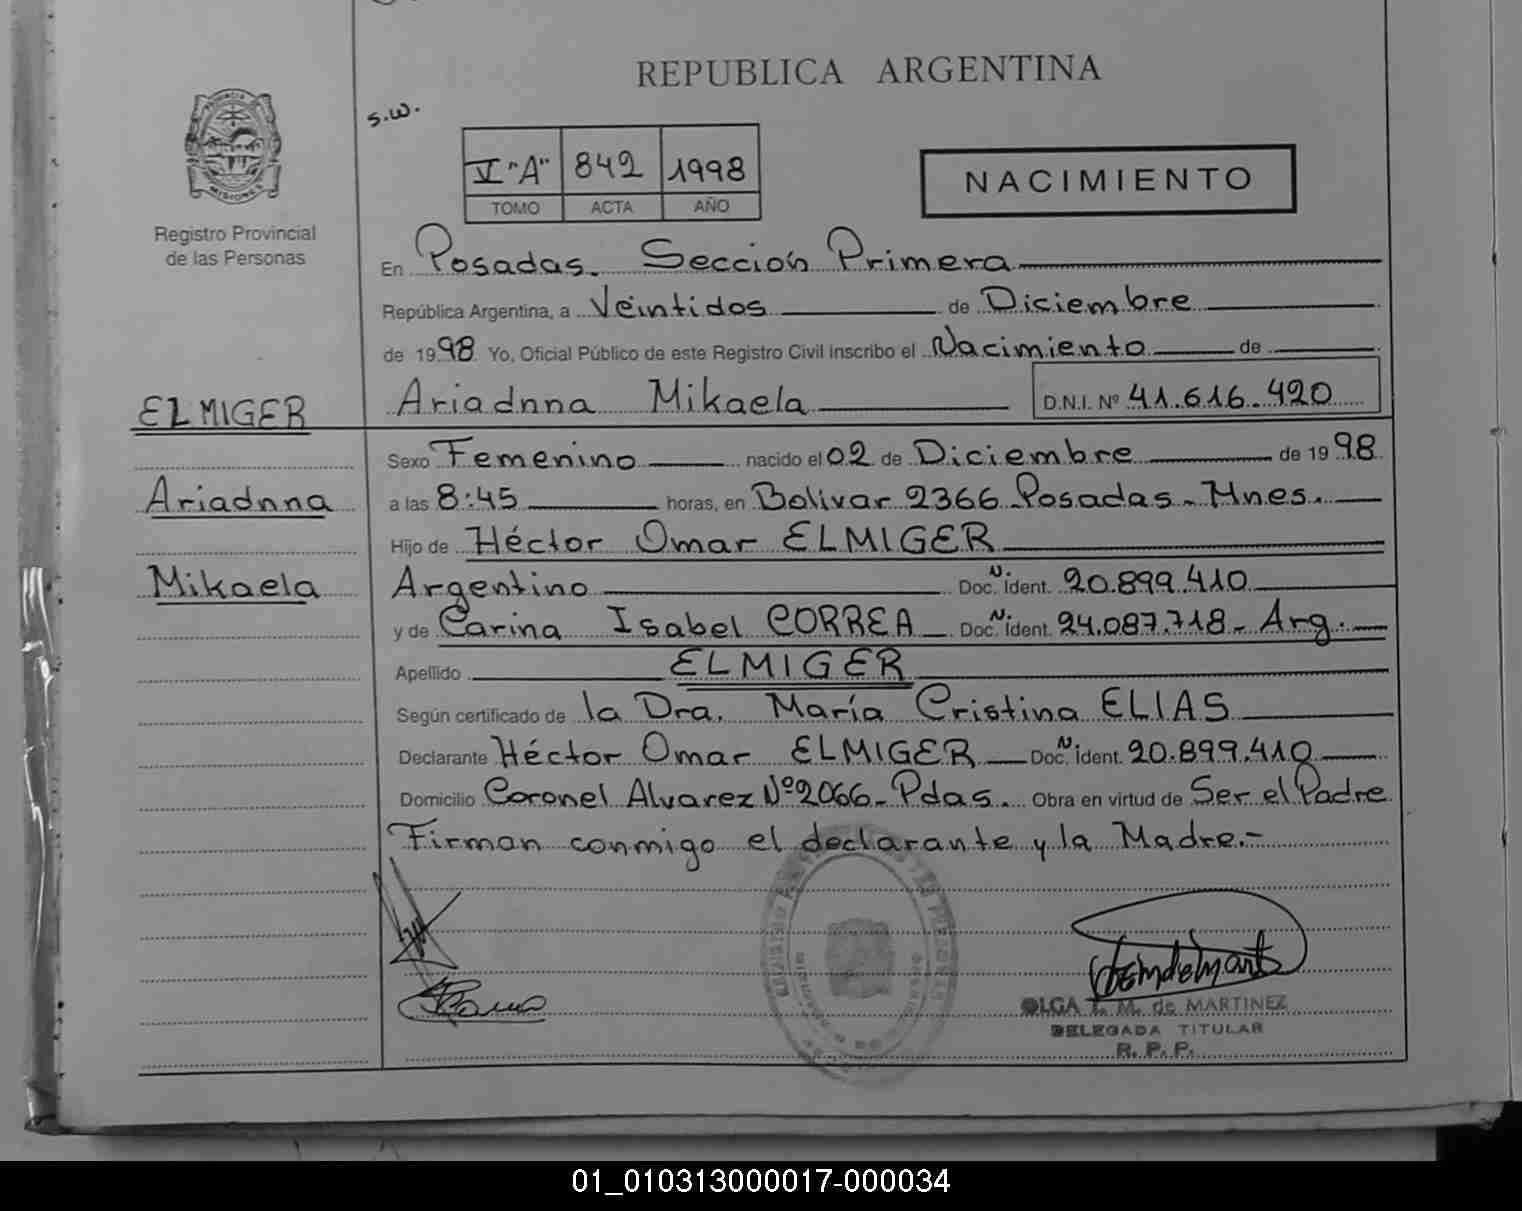 REPUBLICA ARGENTINA
S.W.
PROVINCIA DE
MISIONES
Registro Provincial
de las Personas
V "A" 842 1998
TOMO ACTA AÑO
NACIMIENTO
En Posadas. Sección Primera
República Argentina, a Veintidos de Diciembre
de 1998 Yo, Oficial Público de este Registro Civil inscribo el Nacimiento de
Ariadnna Mikaela D.N.I. Nº 41.616.420
ELMIGER
Ariadnna
Mikaela
Sexo Femenino nacido el 02 de Diciembre de 1998
a las 8:45 horas, en Bolivar 2366 Posadas - Mnes.
Hijo de Héctor Omar ELMIGER
Argentino Doc. N. Ident. 20.899.410
y de Carina Isabel CORREA Doc. N. Ident. 24.087.718 - Arg.
Apellido ELMIGER
Según certificado de la Dra. María Cristina ELIAS
Declarante Héctor Omar ELMIGER Doc. N. Ident. 20.899.410
Domicilio Coronel Alvarez Nº 2066 - Pdas. Obra en virtud de Ser el Padre
Firman conmigo el declarante y la Madre.-
OLGA T. M. de MARTINEZ
DELEGADA TITULAR
R. P. P.
01_010313000017-000034